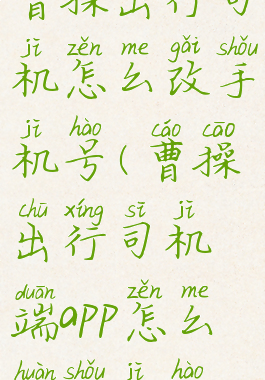 曹操出行司
jī zěn me gǎi shǒu
机怎么改手
jī hào cáo cāo
机号(曹操
chū xíng sī jī
出行司机
duān zěn me
端app怎么
huàn shǒu jī hào